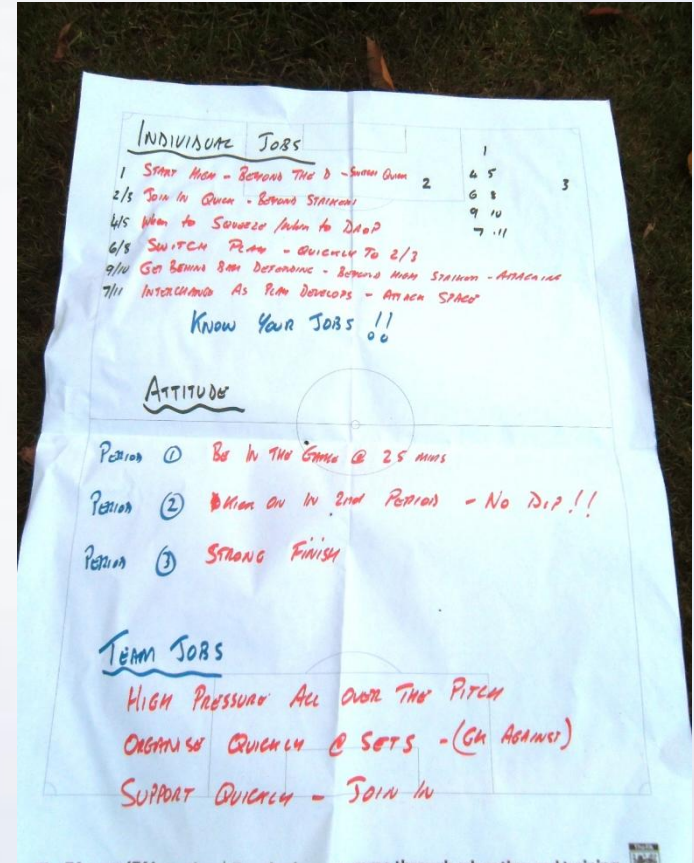 INDIVIDUAL JOBS
1 START HIGH - BEYOND THE D - SWEEP QUICK
2/3 JOIN IN QUICK - BEYOND STRIKERS
4/5 WHEN TO SQUEEZE / WHEN TO DROP
6/8 SWITCH PLAY - QUICKLY TO 2/3
9/10 GET BEHIND BALL DEFENDING - BEYOND HIGH STRIKER - ATTACKING
7/11 INTERCHANGE AS PLAY DEVELOPS - ATTACK SPACE
1
4 5
2
3
6 8
9 10
7 - 11
KNOW YOUR JOBS !!
ATTITUDE
PERIOD 1 BE IN THE GAME @ 25 MINS
PERIOD 2 KICK ON IN 2ND PERIOD - NO DIP!!
PERIOD 3 STRONG FINISH
TEAM JOBS
HIGH PRESSURE ALL OVER THE PITCH
ORGANISE QUICKLY @ SETS - (GK AGAINST)
SUPPORT QUICKLY - JOIN IN